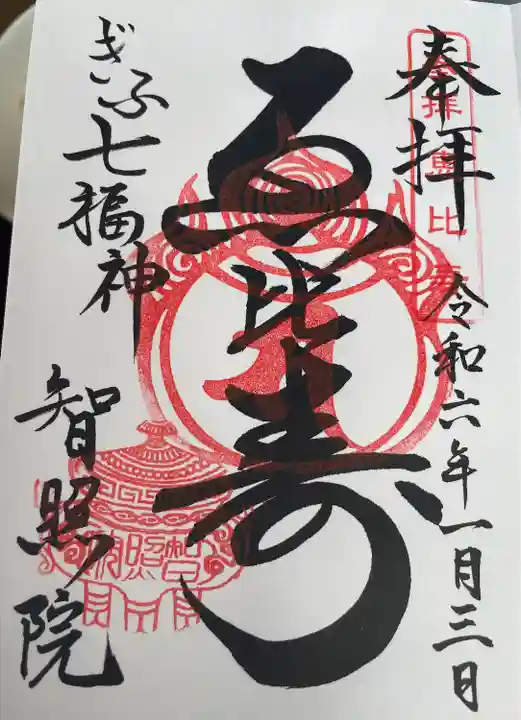 奉拝
拝恵比寿
令和六年一月三日
恵比寿
ぎふ七福神
智照院